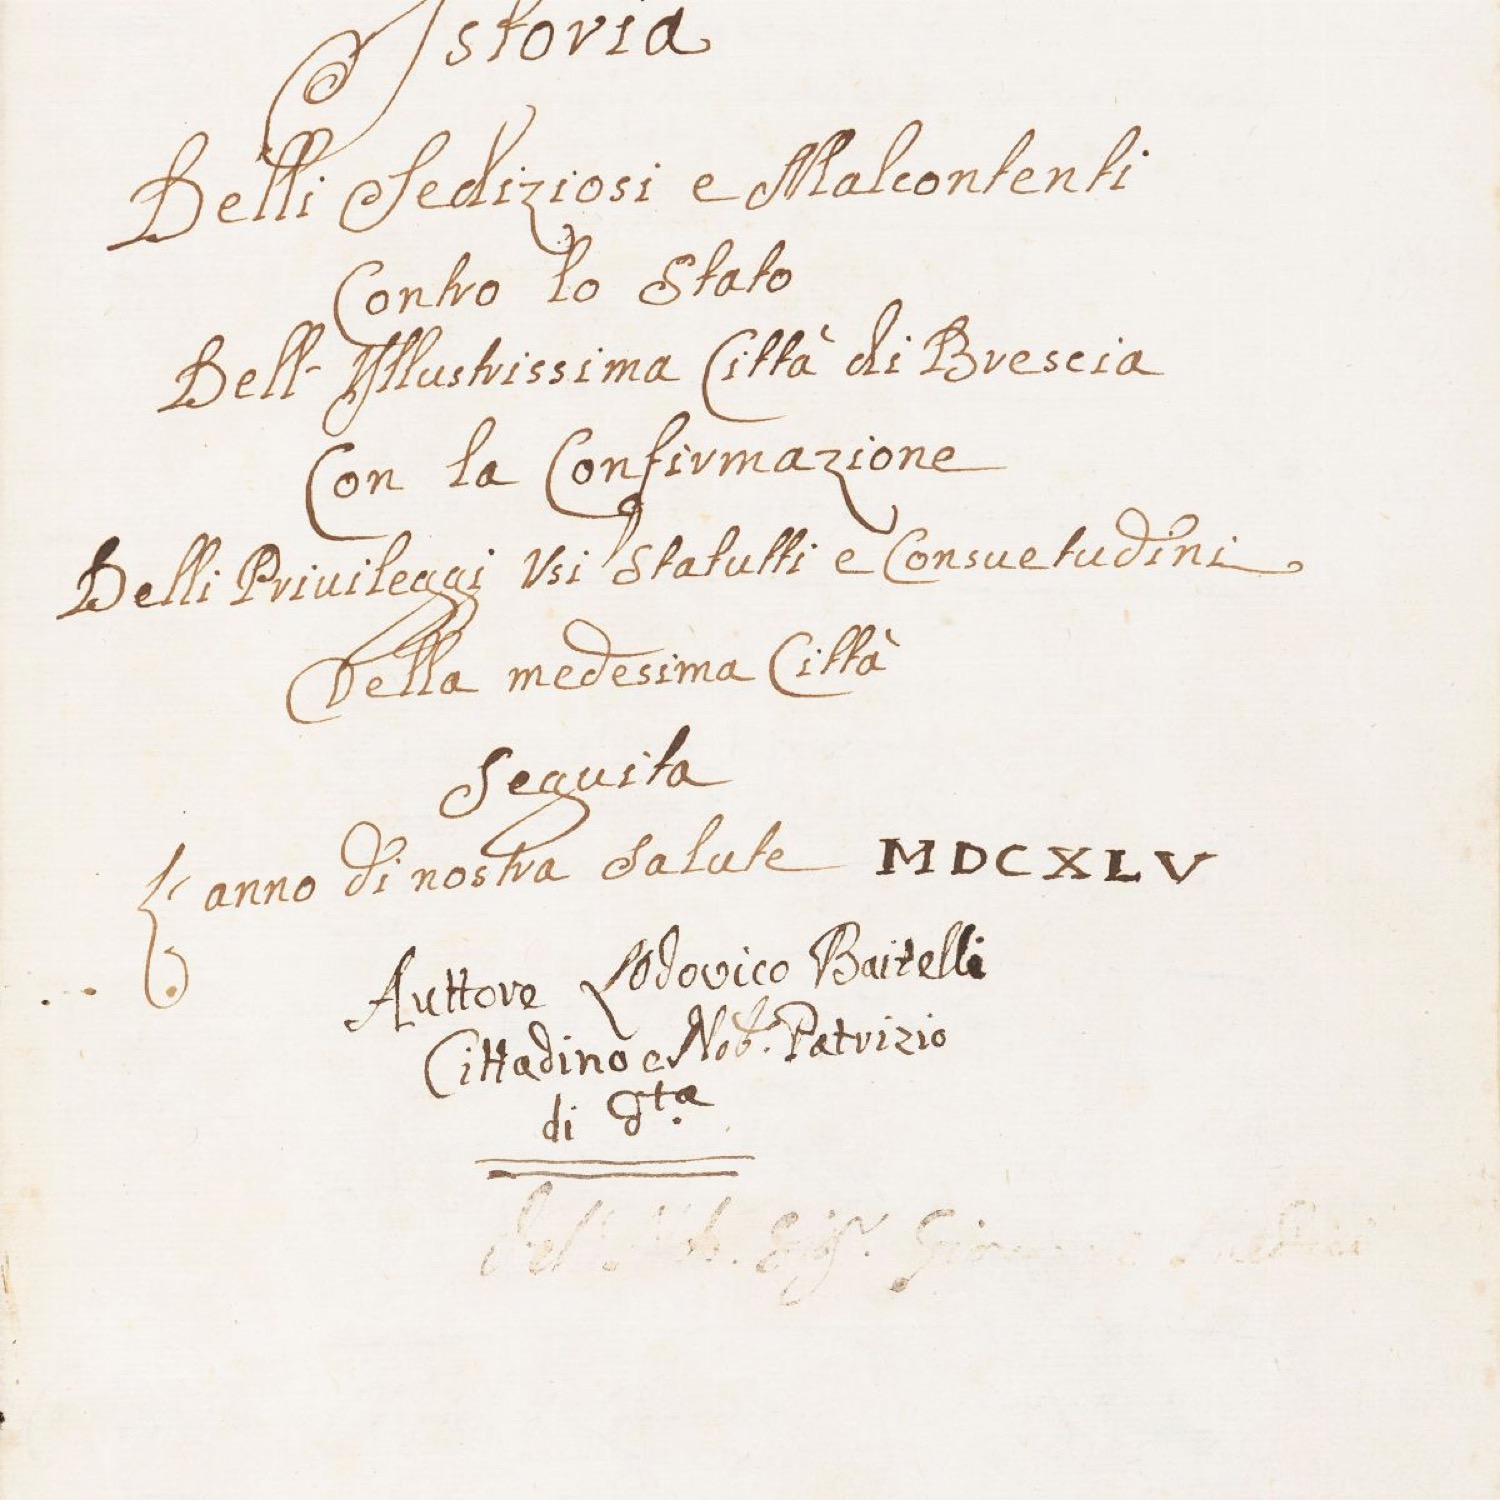 Istoria
Delli Sediziosi e Malcontenti
Contro lo Stato
Dell' Illustrissima Città di Brescia
Con la Confirmazione
Delli Priuileggi Vsi Statutti e Consuetudini
Della medesima Città
Seguita
L'anno di nostra Salute MDCXLV
Auttore Lodovico Baitelli
Cittadino e Nob. Patrizio
di dta.
del Sigr.